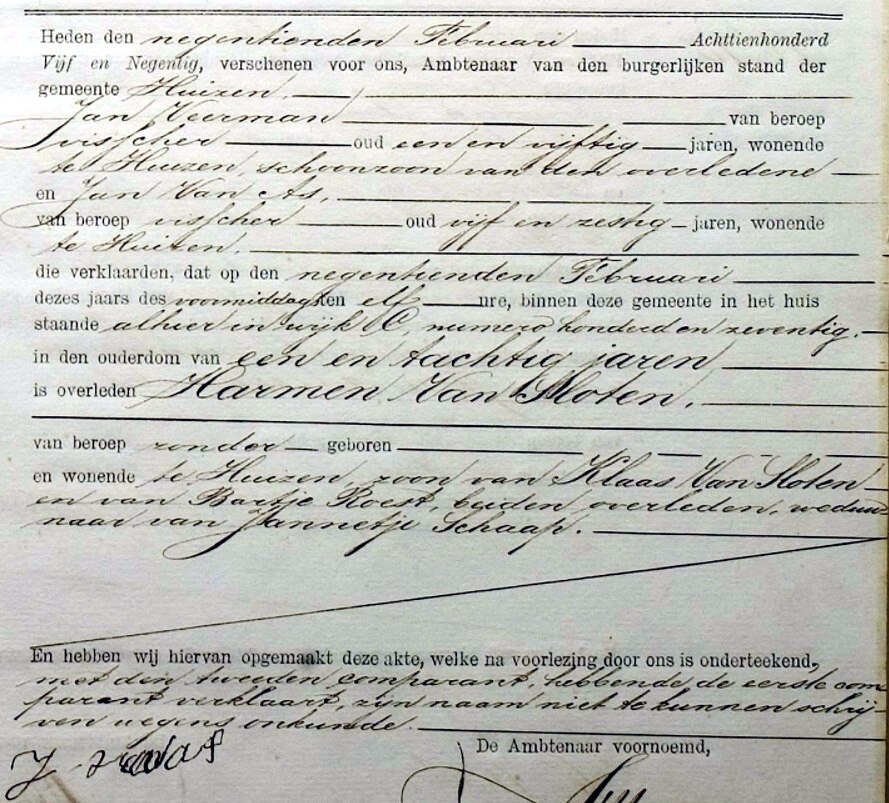 Heden den negentienden Februari Achttienhonderd
Vijf en Negentig, verschenen voor ons, Ambtenaar van den burgerlijken stand der
gemeente Huizen.
Jan Veerman van beroep
visscher oud een en vijftig jaren, wonende
te Huizen, schoonzoon van den overledene
en Jan Van As,
van beroep visscher oud vijf en zestig jaren, wonende
te Huizen.
die verklaarden, dat op den negentienden Februari
dezes jaars des voormiddags ten elf ure, binnen deze gemeente in het huis
staande alhier in wijk C, numero honderd en zeventig.
in den ouderdom van een en tachtig jaren
is overleden Harmen Van Sloten,
van beroep zonder geboren
en wonende te Huizen, zoon van Klaas Van Sloten
en van Bartje Roest, beiden overleden, weduw
naar van Jannetje Schaap.
En hebben wij hiervan opgemaakt deze akte, welke na voorlezing door ons is onderteekend,
met den tweeden comparant, hebbende de eerste com
parant verklaart, zijn naam niet te kunnen schrij-
ven wegens onkunde.
De Ambtenaar voornoemd,
J